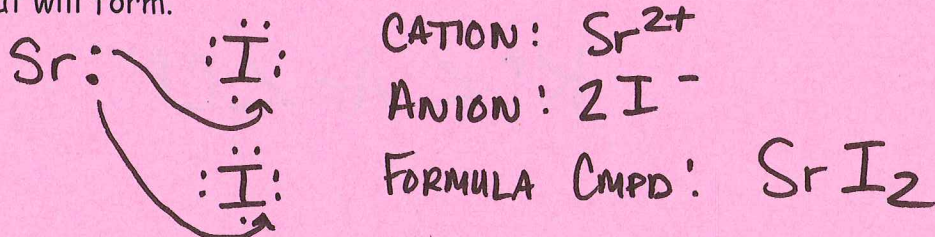 will form.
Sr: I CATION: Sr²⁺
ANION: 2I⁻
I FORMULA CMPD: SrI₂